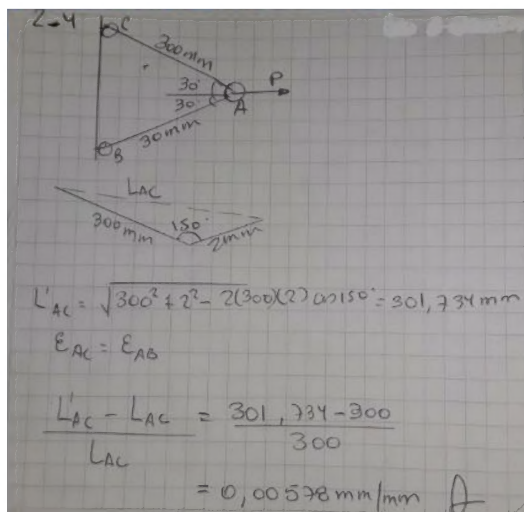 2-4
C
300mm
P
30°
30°
A
30mm
B
LAC
300mm 150° 2mm
L'AC = √300² + 2² - 2(300)(2) cos150° = 301,734 mm
εAC = εAB
L'AC - LAC / LAC = 301,734 - 300 / 300
= 0,00578 mm/mm